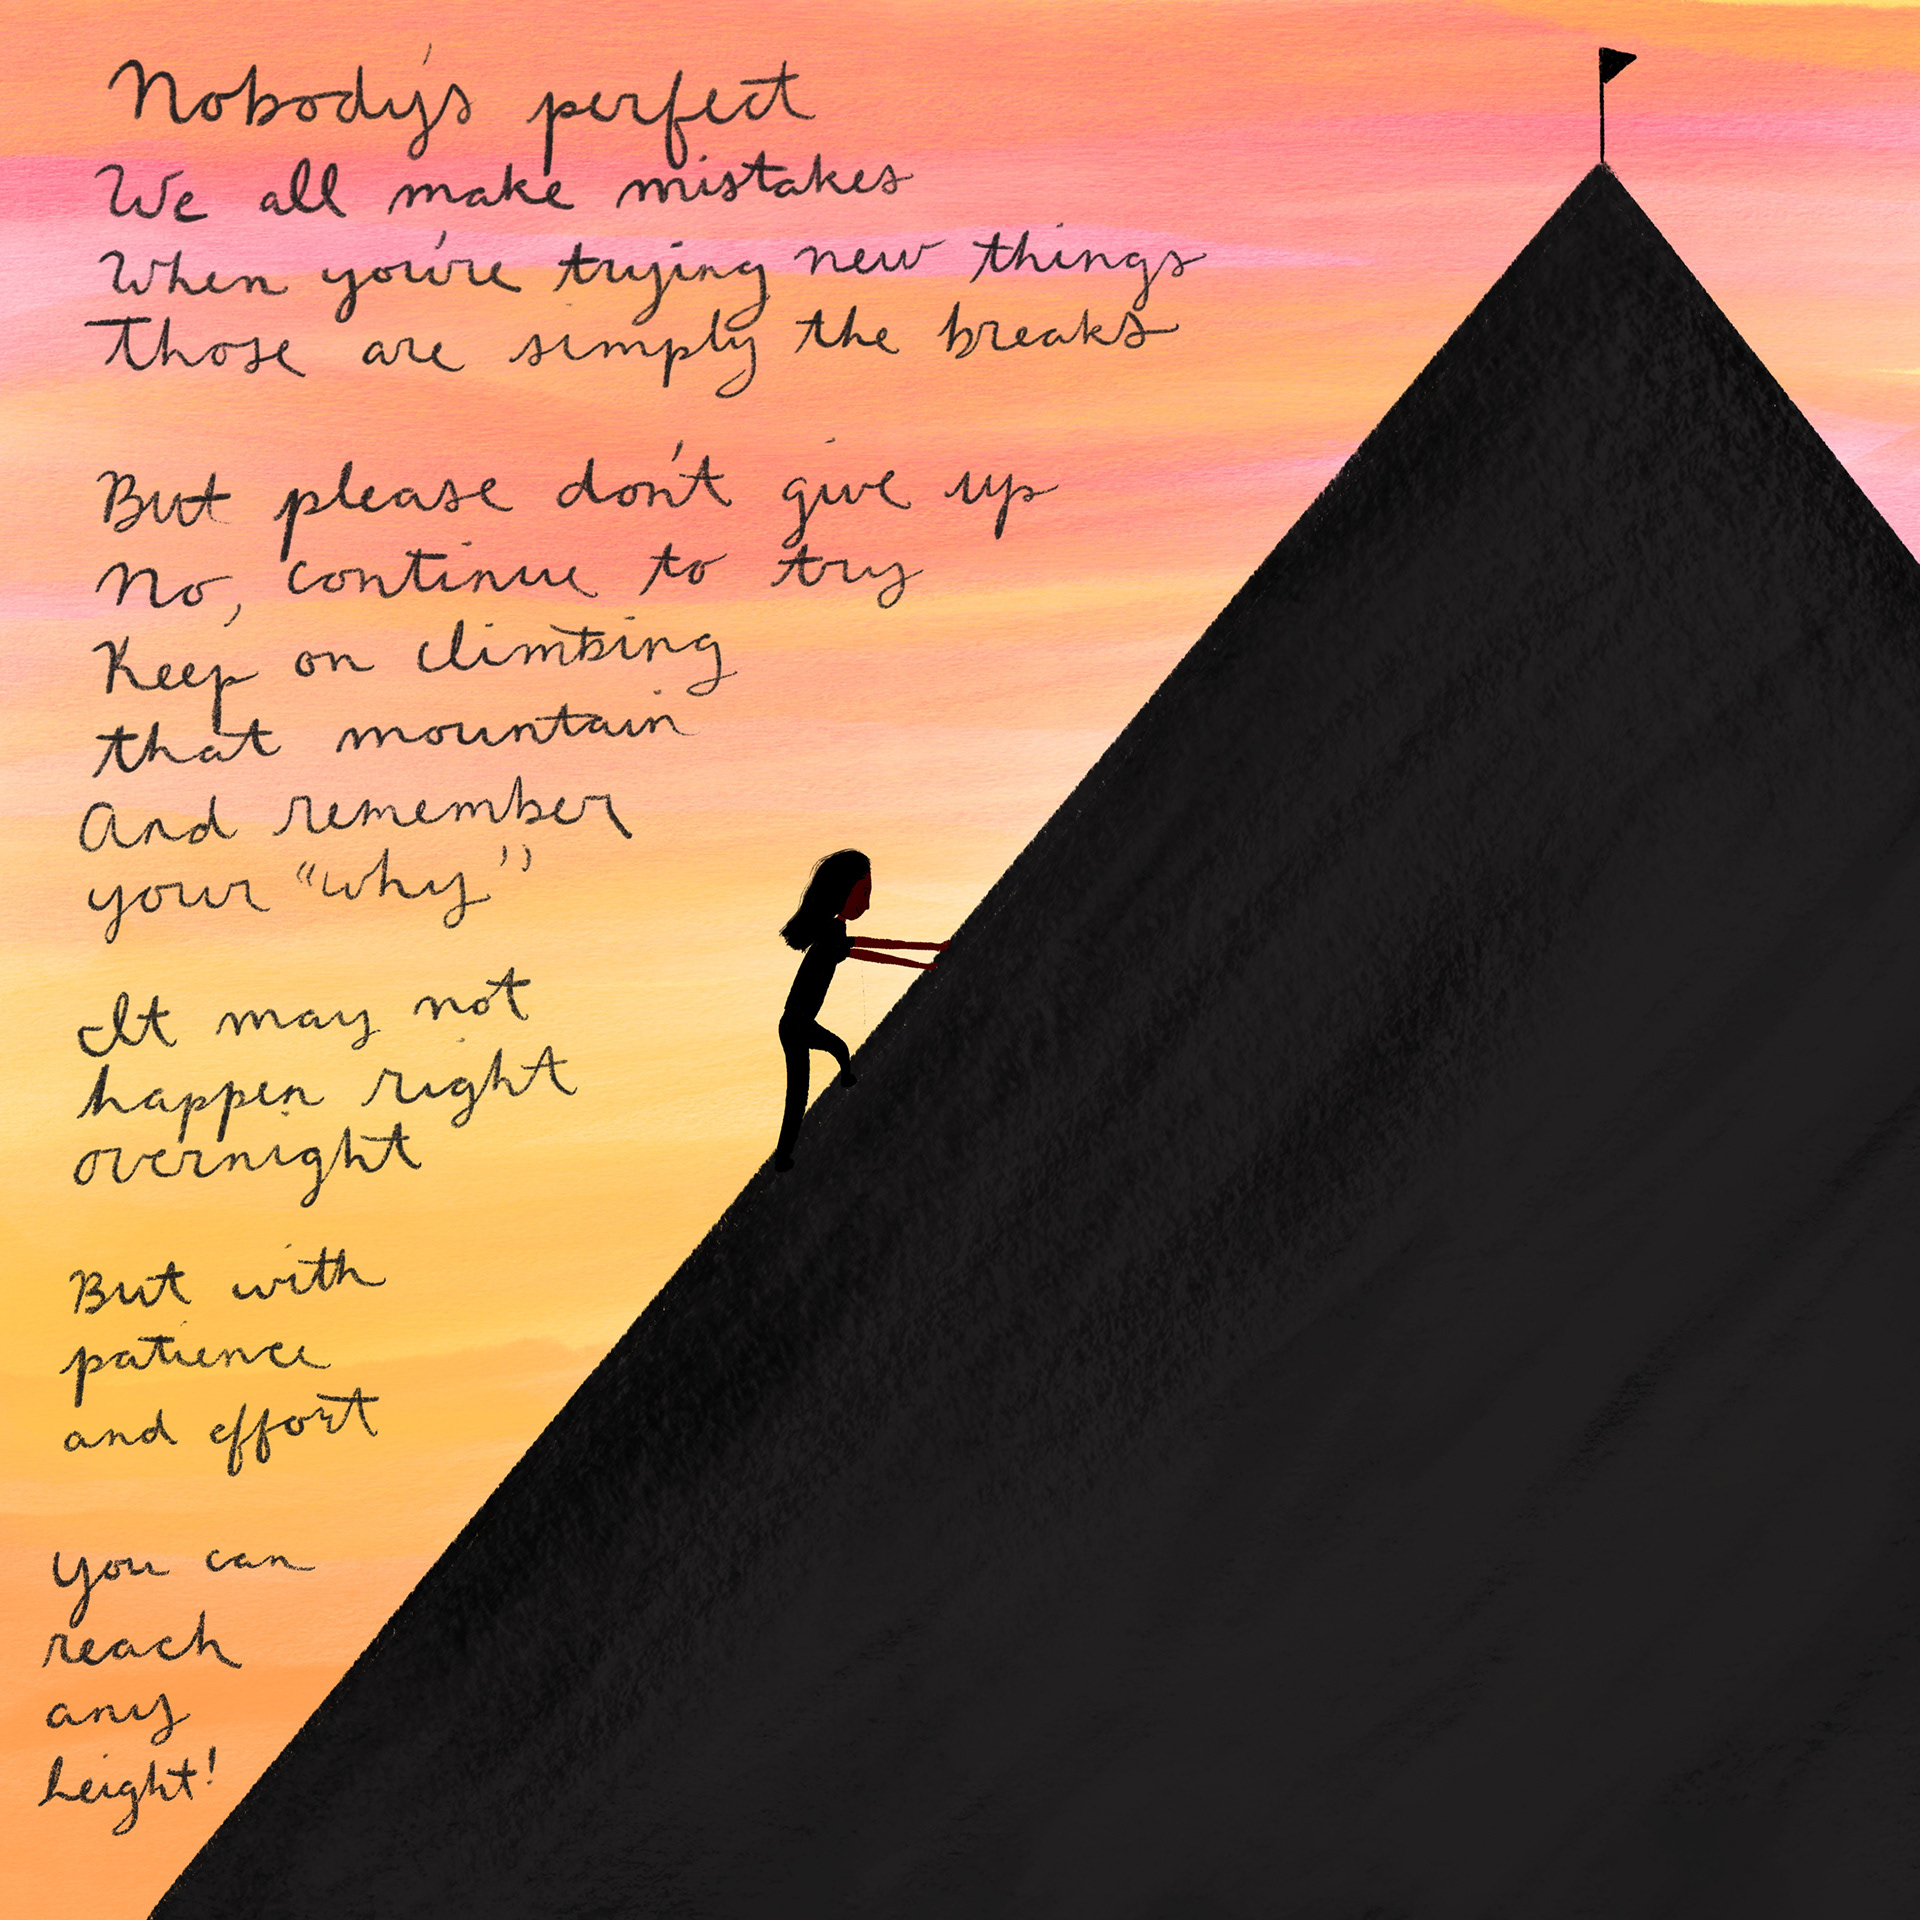 Nobody's perfect
We all make mistakes
When you're trying new things
Those are simply the breaks
But please don't give up
No, continue to try
Keep on climbing
that mountain
And remember
your "why"
It may not
happen right
overnight
But with
patience
and effort
You can
reach
any
height!